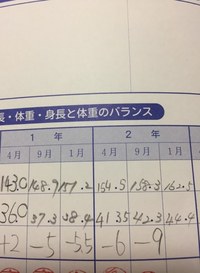 長・体重・身長と体重のバランス
1 年 2 年
4月 9月 1月 4月 9月 1月
143.0 148.9 151.2 154.5 158.3 162.5
36.0 37.3 38.4 41.35 42.3 44.4
+2 -5 -5.5 -6 -9